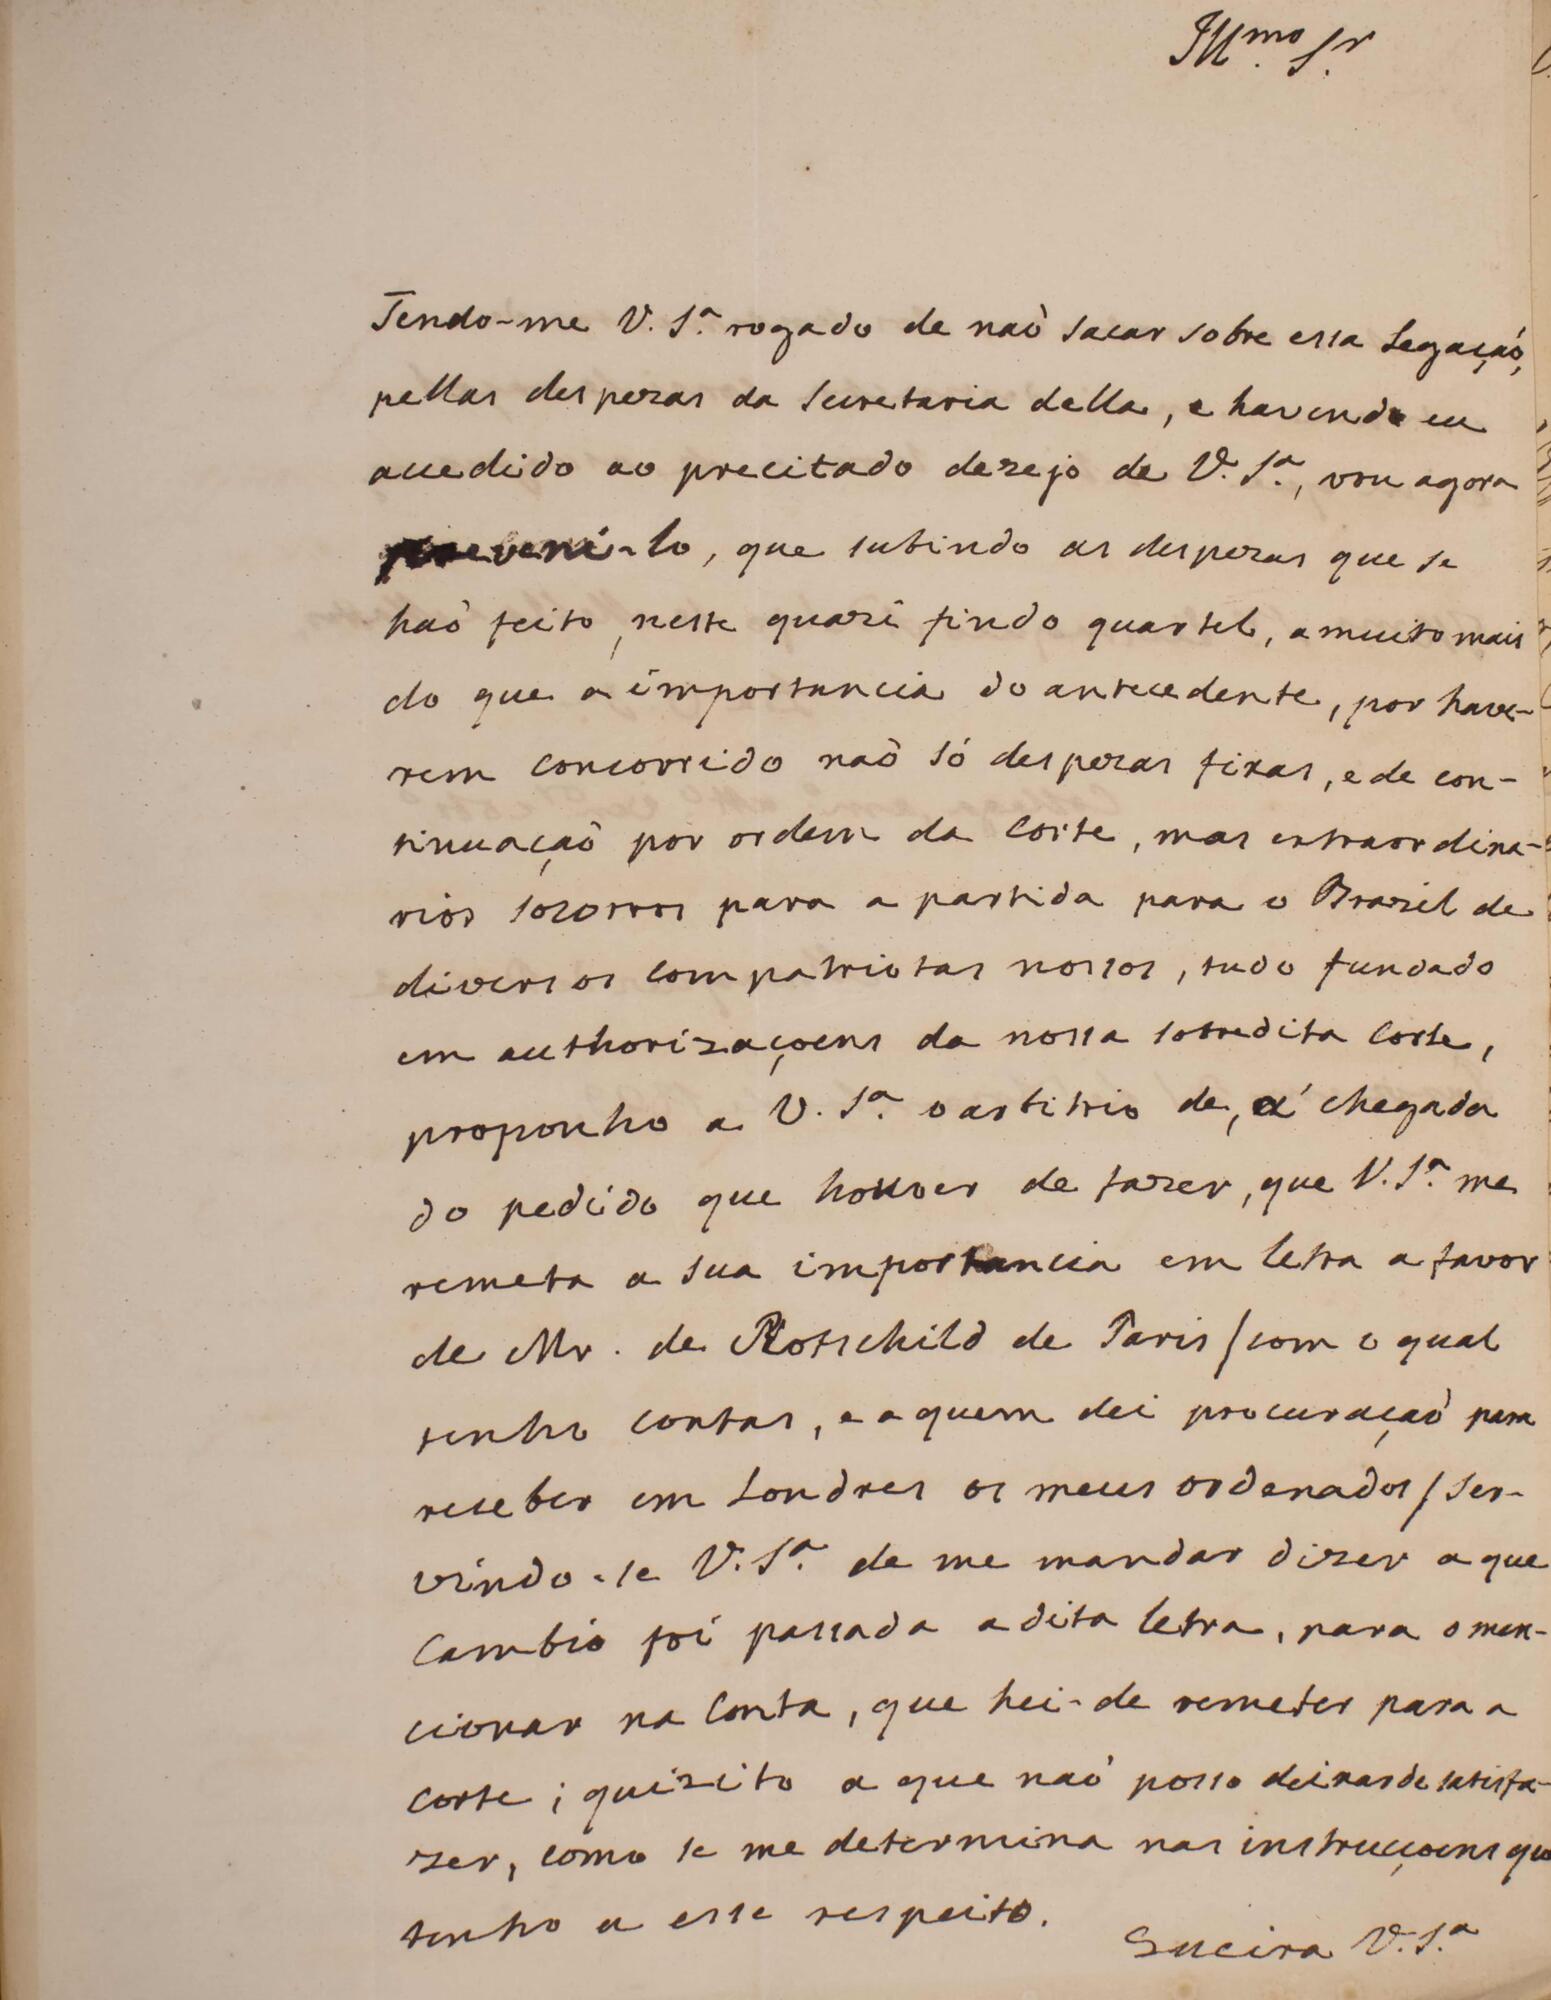 Ill.mo S.r
Tendo-me V. S.ª rogado de naõ sacar sobre essa Legaçaõ,
pellas despezas da Secretaria della, e havendo eu
accedido ao precitado dezejo de V. S.ª, vou agora
preveni-lo, que subindo as despezas que se
haõ feito, neste quazi findo quartel, a muito mais
do que a importancia do antecedente, por have-
rem concorrido naõ só despezas fixas, e de con-
tinuaçaõ por ordem da Corte, mas extraordina-
rios socorros para a partida para o Brazil de
diversos compatriotas nossos, tudo fundado
em authorizaçoens da nossa sobredita Corte,
proponho a V. S.ª o arbitrio de, á chegada
do pedido que houver de fazer, que V. S.ª me
remeta a sua importancia em letra a favor
de Mr. de Rotschild de Paris / com o qual
tenho contas, e a quem dei procuraçaõ para
receber em Londres os meus ordenados / ser-
vindo-se V. S.ª de me mandar dizer a que
Cambio foi passada a dita letra, para o men-
cionar na Conta, que hei-de remeter para a
Corte; quizito a que naõ posso deixar de satisfa-
zer, como se me determina nas instrucçoens que
tenho a esse respeito.
Queira V. S.ª